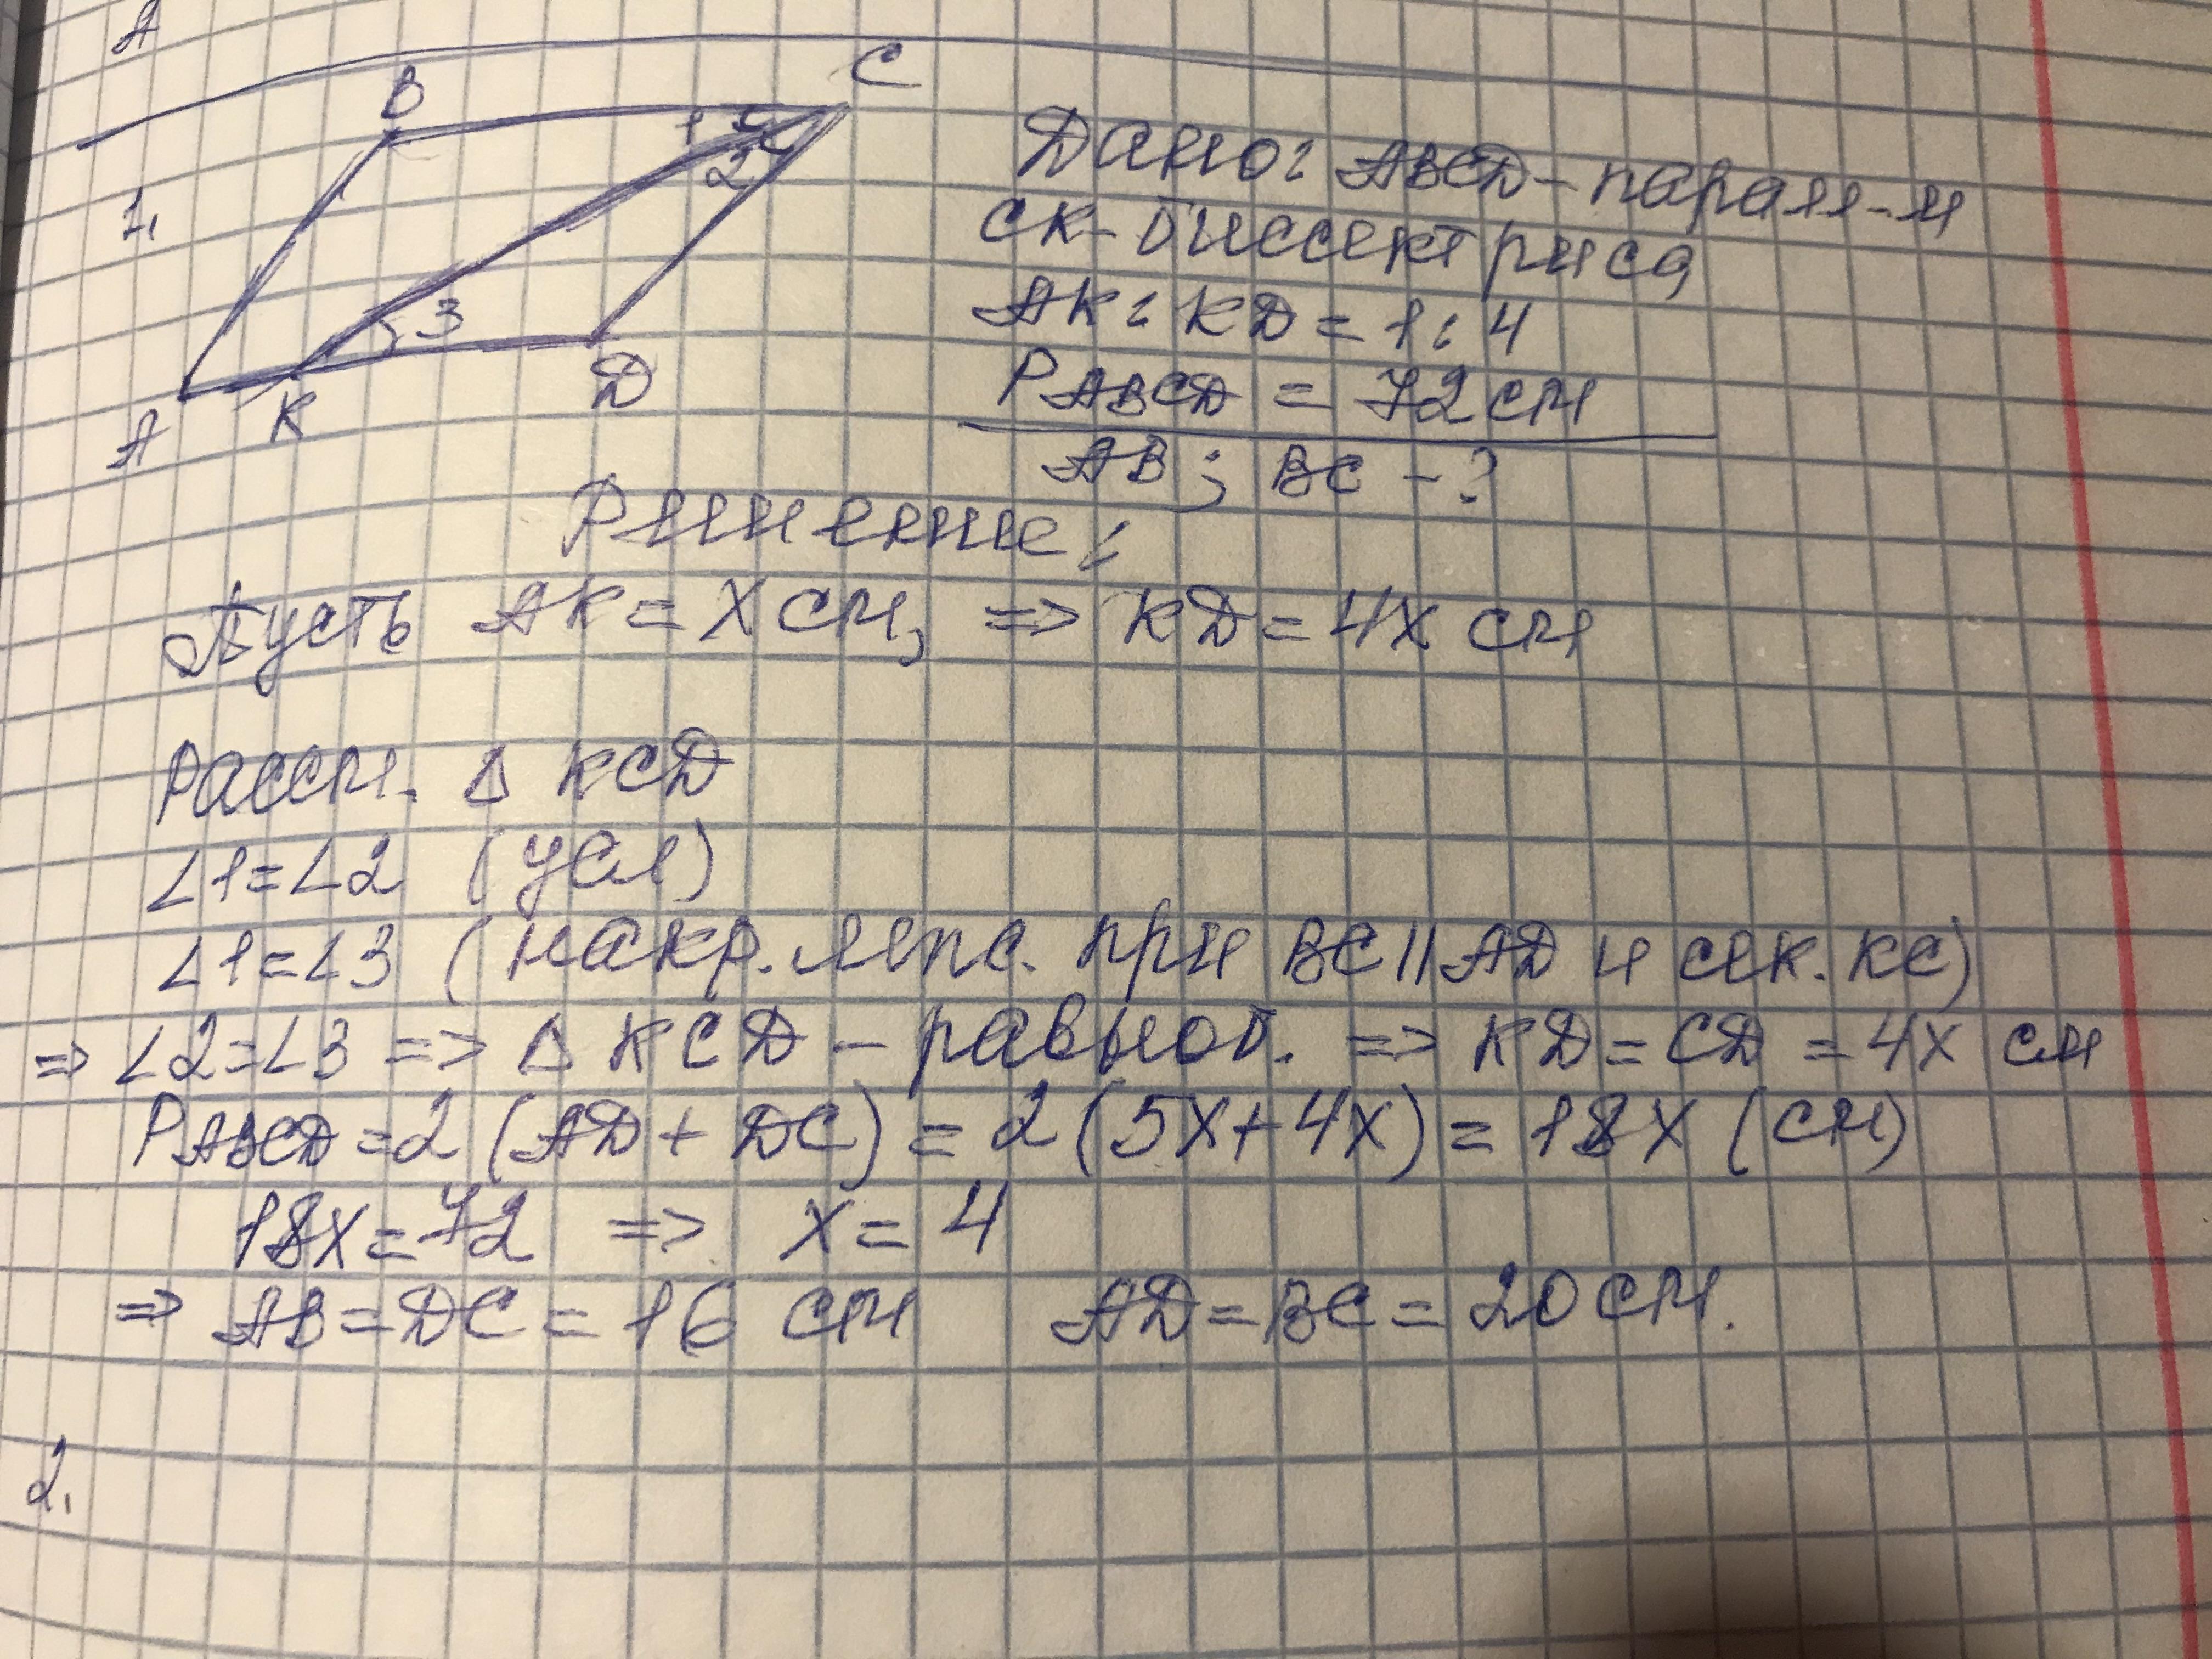 А
1.
B
C
1
2
3
A
K
D
Дано: ABCD - парал-м
CK - биссектриса
AK : KD = 1 : 4
PABCD = 72 см
AB ; BC - ?
Решение:
Пусть AK = X см, => KD = 4X см
Рассм. Δ KCD
∠1=∠2 (усл)
∠1=∠3 (накр. леж. при BC || AD и сек. KC)
=> ∠2=∠3 => Δ KCD - равноб. => KD = CD = 4X см
PABCD = 2 (AD + DC) = 2 (5X + 4X) = 18X (см)
18X = 72 => X = 4
=> AB = DC = 16 см AD = BC = 20 см.
2.